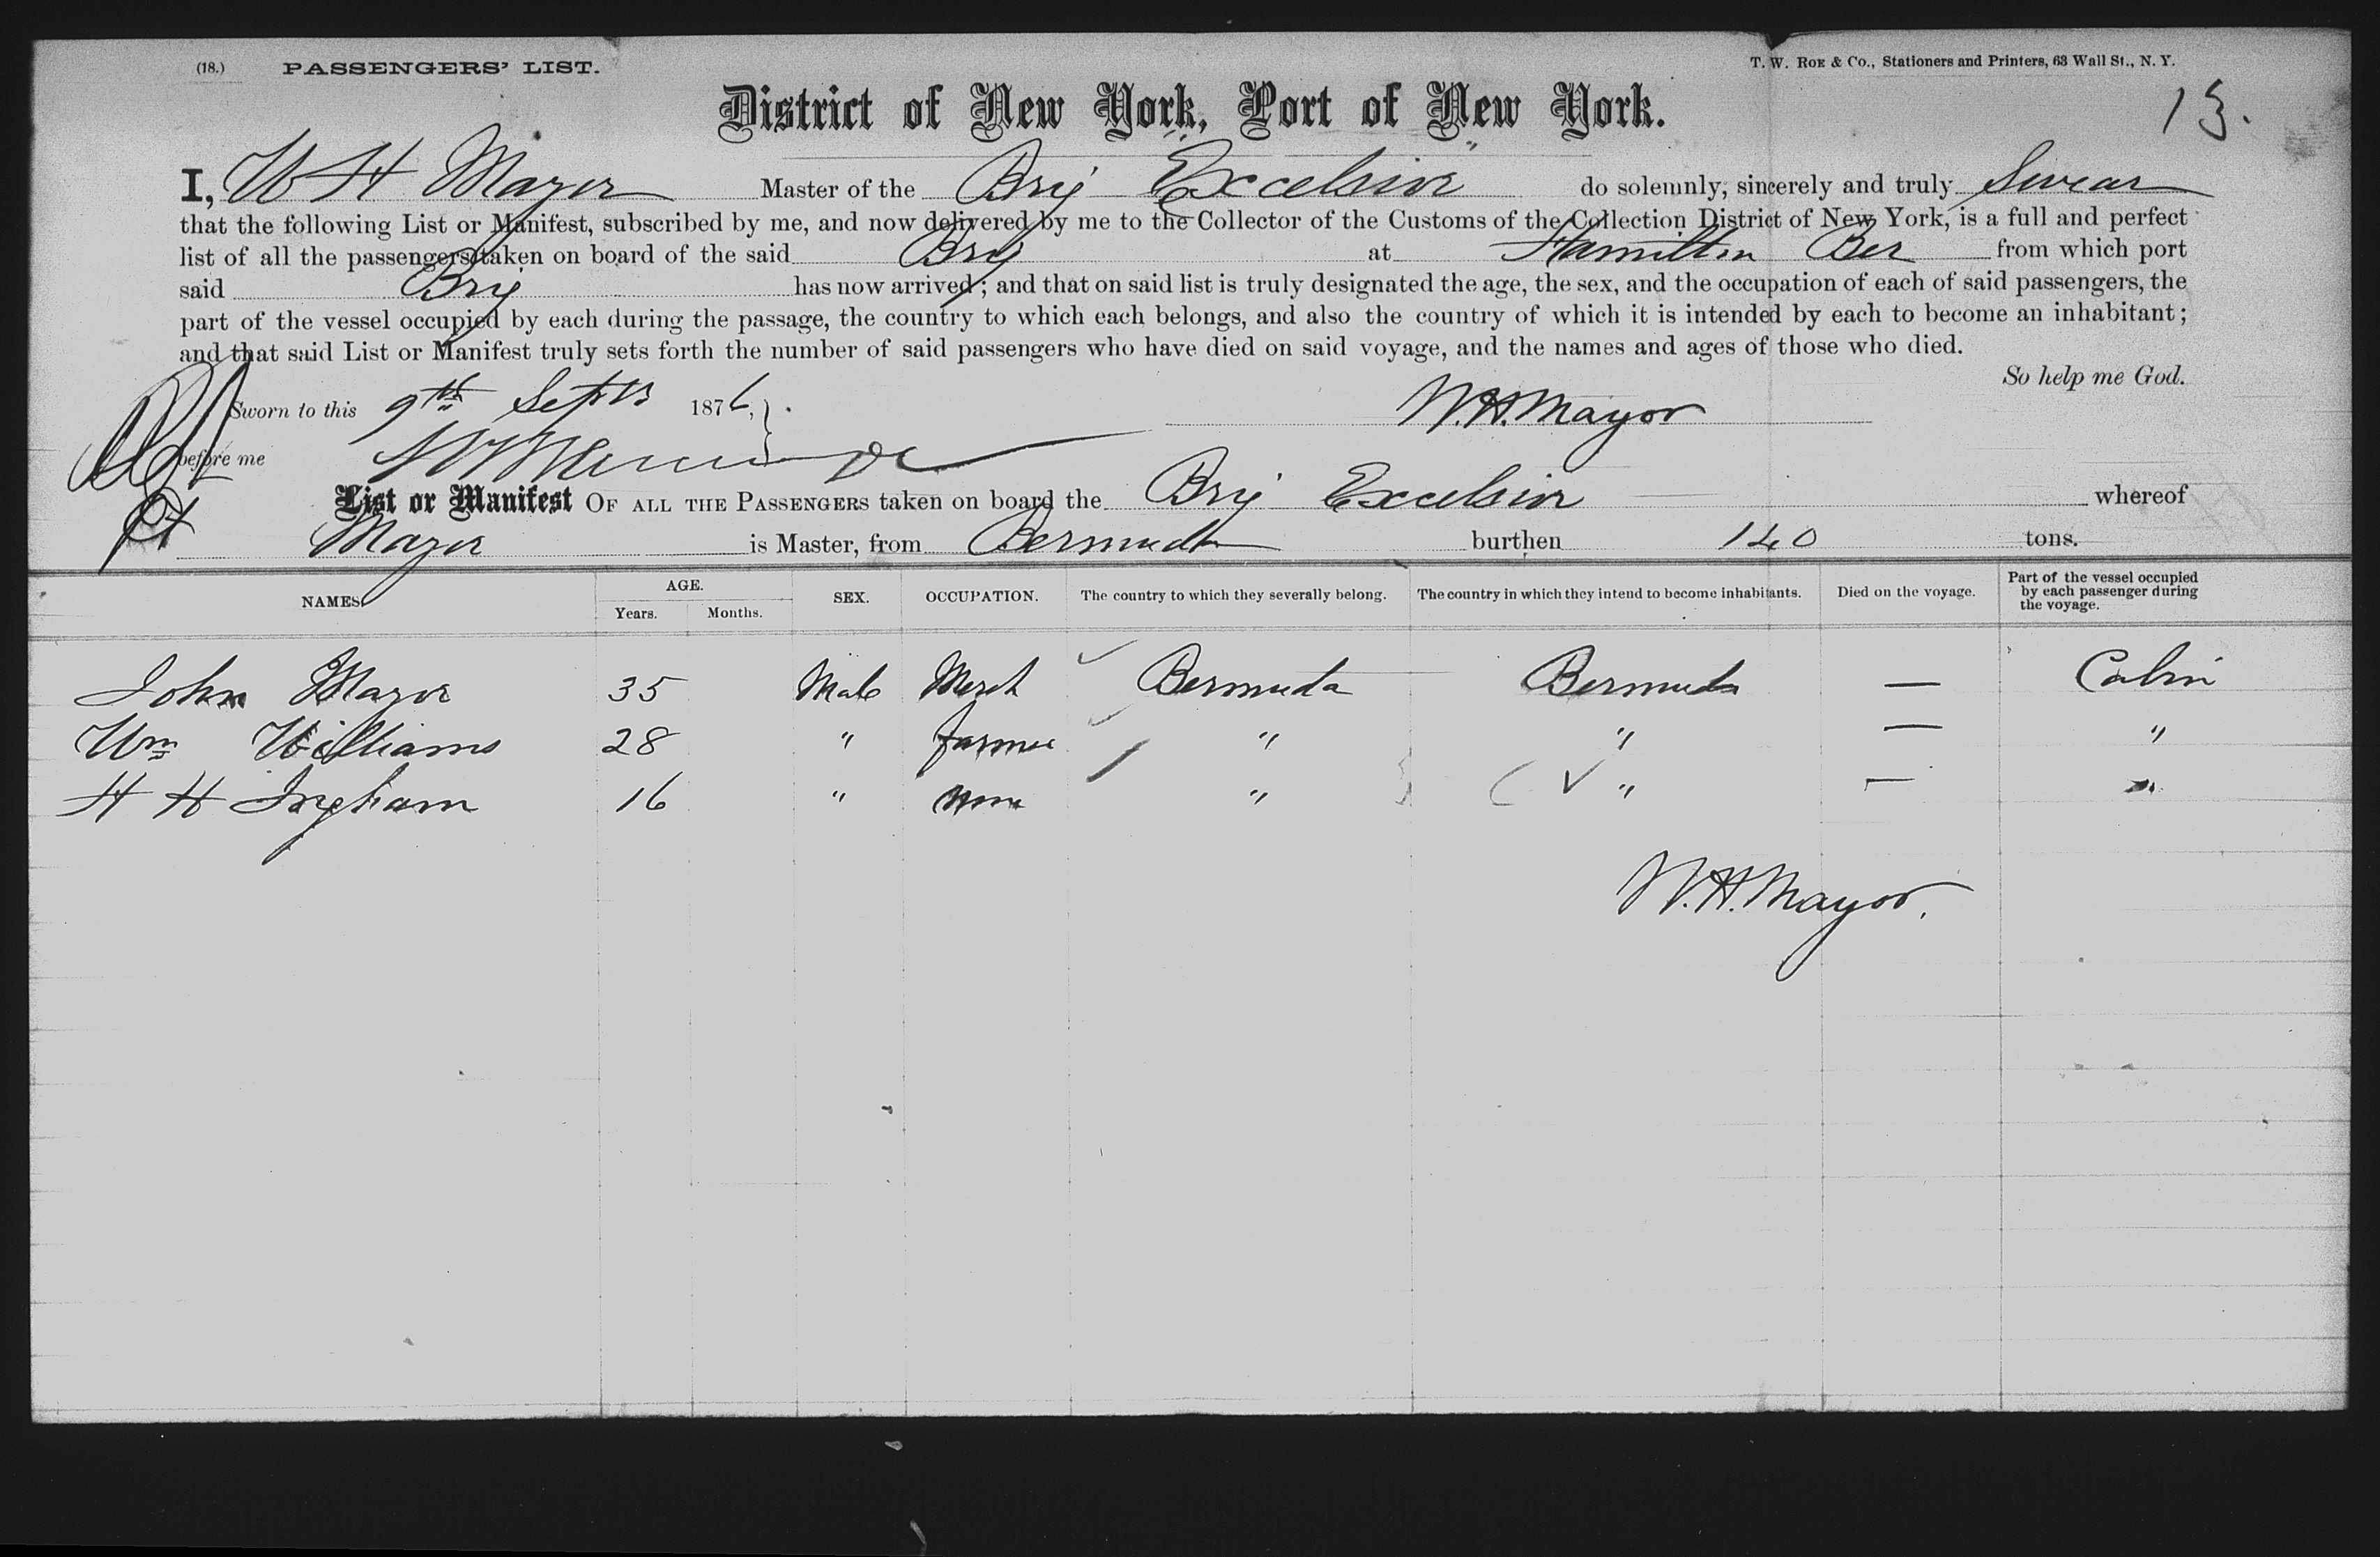 (18.) PASSENGERS' LIST. T. W. ROE & CO., Stationers and Printers, 63 Wall St., N. Y.
District of New York, Port of New York.
13.
I, W H Mayor Master of the Brig Excelsior do solemnly, sincerely and truly Swear
that the following List or Manifest, subscribed by me, and now delivered by me to the Collector of the Customs of the Collection District of New York, is a full and perfect
list of all the passengers taken on board of the said Brig at Hamilton Ber from which port
said Brig has now arrived; and that on said list is truly designated the age, the sex, and the occupation of each of said passengers, the
part of the vessel occupied by each during the passage, the country to which each belongs, and also the country of which it is intended by each to become an inhabitant;
and that said List or Manifest truly sets forth the number of said passengers who have died on said voyage, and the names and ages of those who died.
So help me God.
Sworn to this 9th Septr 1876, W.H. Mayor
before me
List or Manifest OF ALL THE PASSENGERS taken on board the Brig Excelsior whereof
Mayor is Master, from Bermuda burthen 140 tons.
NAMES. AGE. Years. Months. SEX. OCCUPATION. The country to which they severally belong. The country in which they intend to become inhabitants. Died on the voyage. Part of the vessel occupied by each passenger during the voyage.
John Mayor 35 Male Merch Bermuda Bermuda — Cabin
Wm Williams 28 " farmer " " — "
H H Ingham 16 " none " " — "
W.H. Mayor.